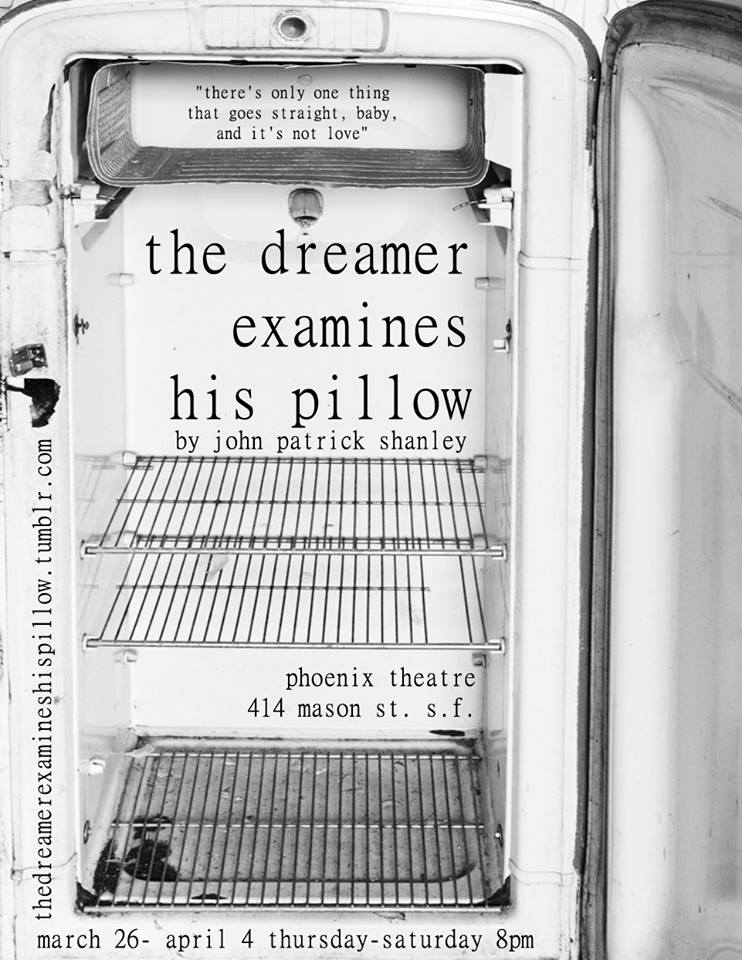 "there's only one thing
that goes straight, baby,
and it's not love"
the dreamer
examines
his pillow
by john patrick shanley
phoenix theatre
414 mason st. s.f.
thedreamerexamineshispillow.tumblr.com
march 26- april 4 thursday-saturday 8pm